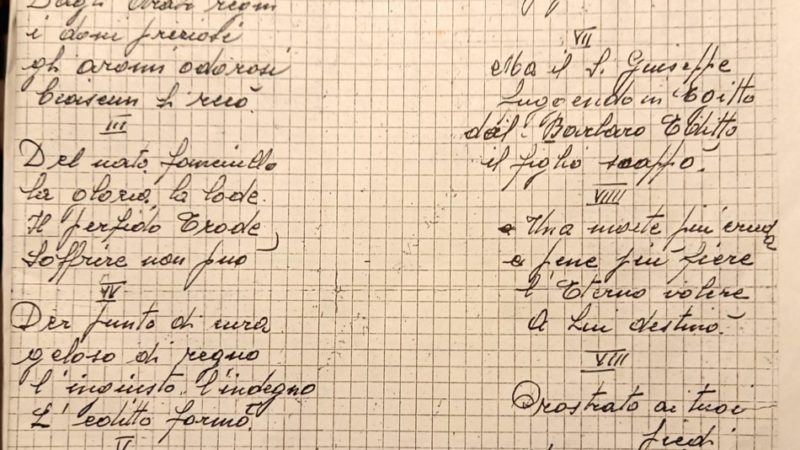 Dagli Arabi regni
i doni preziosi
gli aromi odorosi
ciascun Li recò.
III
Del nato fanciullo
la gloria, la lode.
Il perfido Erode
Soffrire non può
IV
Per punto di cura
geloso di regno
l'ingiusto, l'indegno
L'editto formò.
V
VII
Ma il S. Giuseppe
fuggendo in Egitto
dal Barbaro Editto
il figlio scappò.
VIIII
Una morte più cruda
e pene più fiere
l'Eterno volere
A Lui destinò.
VIII
Prostrato ai tuoi
piedi